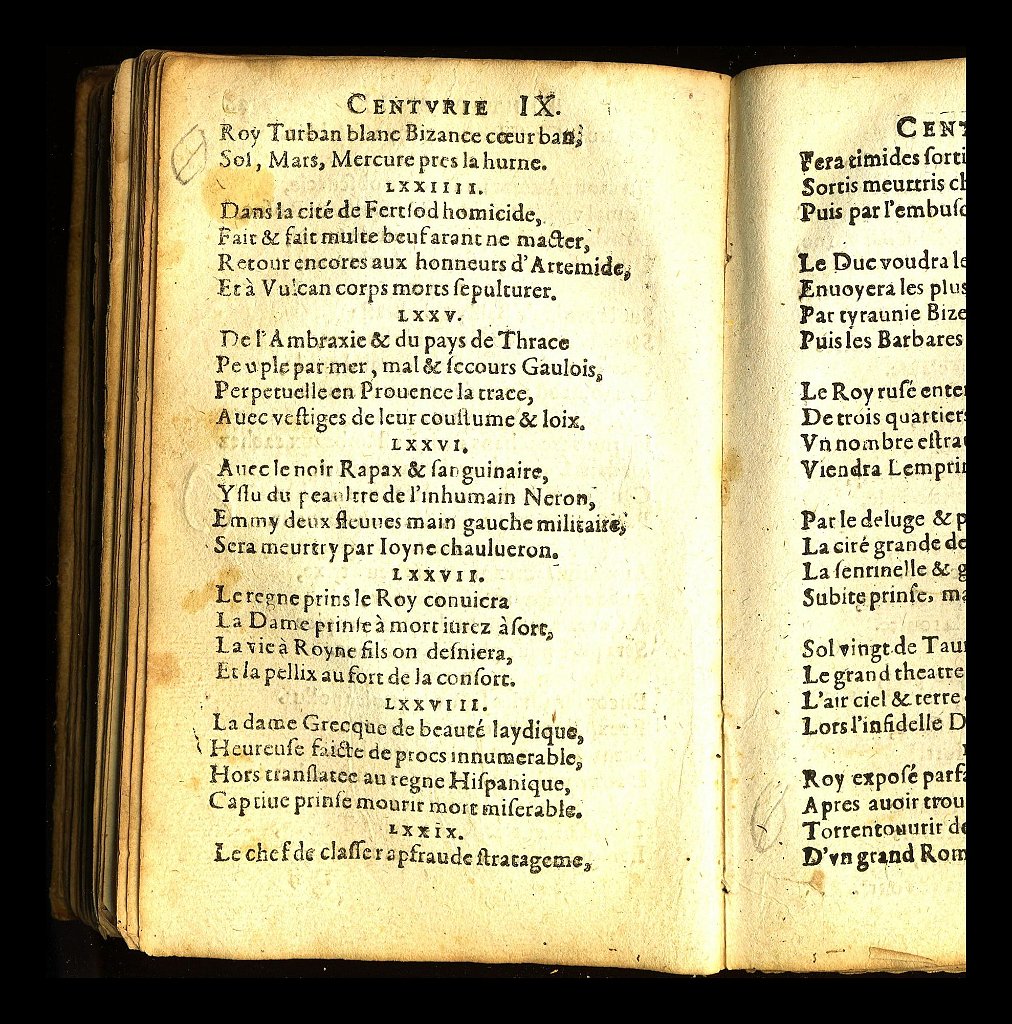 CENTVRIE IX.
Roy Turban blanc Bizance cœur ban,
Sol, Mars, Mercure pres la hurne.
LXXIIII.
Dans la cité de Fertſod homicide,
Fait & fait multe beuf arant ne macter,
Retour encores aux honneurs d'Artemide,
Et à Vulcan corps morts ſepulturer.
LXXV.
De l'Ambraxie & du pays de Thrace
Peuple par mer, mal & ſecours Gaulois,
Perpetuelle en Prouence la trace,
Auec veſtiges de leur couſtume & loix.
LXXVI.
Auec le noir Rapax & ſanguinaire,
Yſſu du peaultre de l'inhumain Neron,
Emmy deux fleuues main gauche militaire,
Sera meurtry par Ioyne chaulueron.
LXXVII.
Le regne prins le Roy conuiera
La Dame prinſe à mort iurez à ſort,
La vie à Royne fils on deſniera,
Et la pellix au fort de la conſort.
LXXVIII.
La dame Grecque de beauté laydique,
Heureuſe faicte de procs innumerable,
Hors tranſlatee au regne Hiſpanique,
Captiue prinſe mourir mort miſerable.
LXXIX.
Le chef de claſſe rapfraude ſtratageme,
CENT
Fera timides ſorti
Sortis meurtris ch
Puis par l'embuſc
Le Duc voudra le
Enuoyera les plus
Par tyraunie Bize
Puis les Barbares
Le Roy ruſé enter
De trois quartiers
Vn nombre eſtra
Viendra Lemprin
Par le deluge & p
La ciré grande de
La ſentinelle & g
Subite prinſe, ma
Sol vingt de Tau
Le grand theatre
L'air ciel & terre
Lors l'infidelle D
Roy expoſé parfa
Apres auoir trou
Torrent ouurir de
D'vn grand Rom